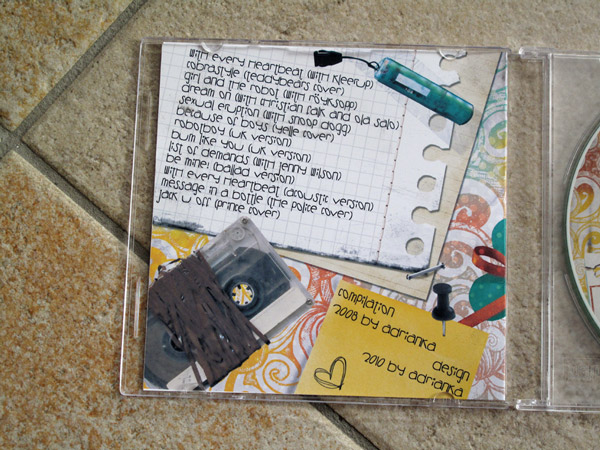 with every heartbeat (with kleerup)
cobrastyle (teddybears cover)
girl and the robot (with röyksopp)
dream on (with christian falk and ola salo)
sexual eruption (with snoop dogg)
because of boys (yelle cover)
robotboy (uk version)
bum like you (uk version)
list of demands (with jenny wilson)
be mine! (ballad version)
with every heartbeat (acoustic version)
message in a bottle (the police cover)
jack u off (prince cover)
compilation
2008 by adrianka
design
2010 by adrianka